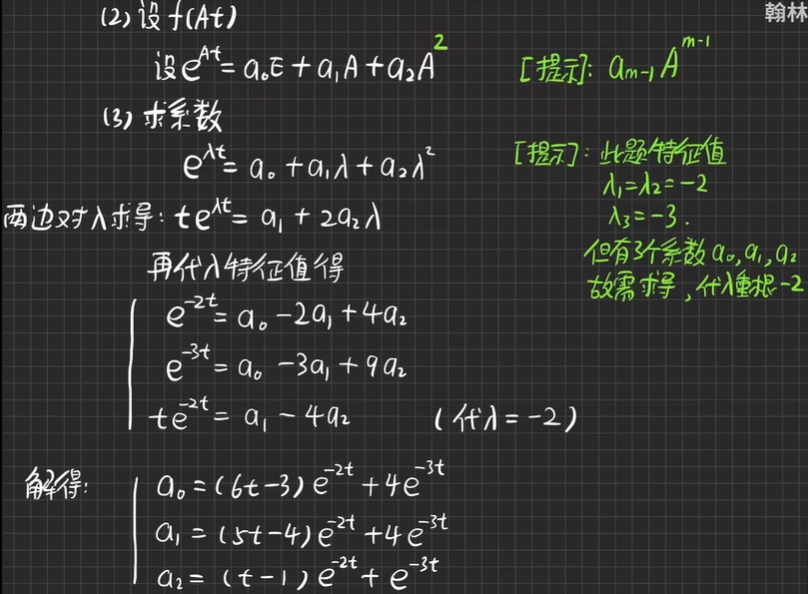 翰林
(2) 设 f(At)
设 e^{At} = a₀E + a₁A + a₂A²
[提示]: a_{m-1} A^{m-1}
(3) 求系数
e^{λt} = a₀ + a₁λ + a₂λ²
[提示]: 此题特征值
λ₁=λ₂=-2
λ₃=-3.
但有3个系数 a₀, a₁, a₂
故需求导, 代入重根-2
两边对λ求导: te^{λt} = a₁ + 2a₂λ
再代入特征值得
e^{-2t} = a₀ - 2a₁ + 4a₂
e^{-3t} = a₀ - 3a₁ + 9a₂
te^{-2t} = a₁ - 4a₂ (代λ=-2)
解得:
a₀ = (6t-3)e^{-2t} + 4e^{-3t}
a₁ = (5t-4)e^{-2t} + 4e^{-3t}
a₂ = (t-1)e^{-2t} + e^{-3t}